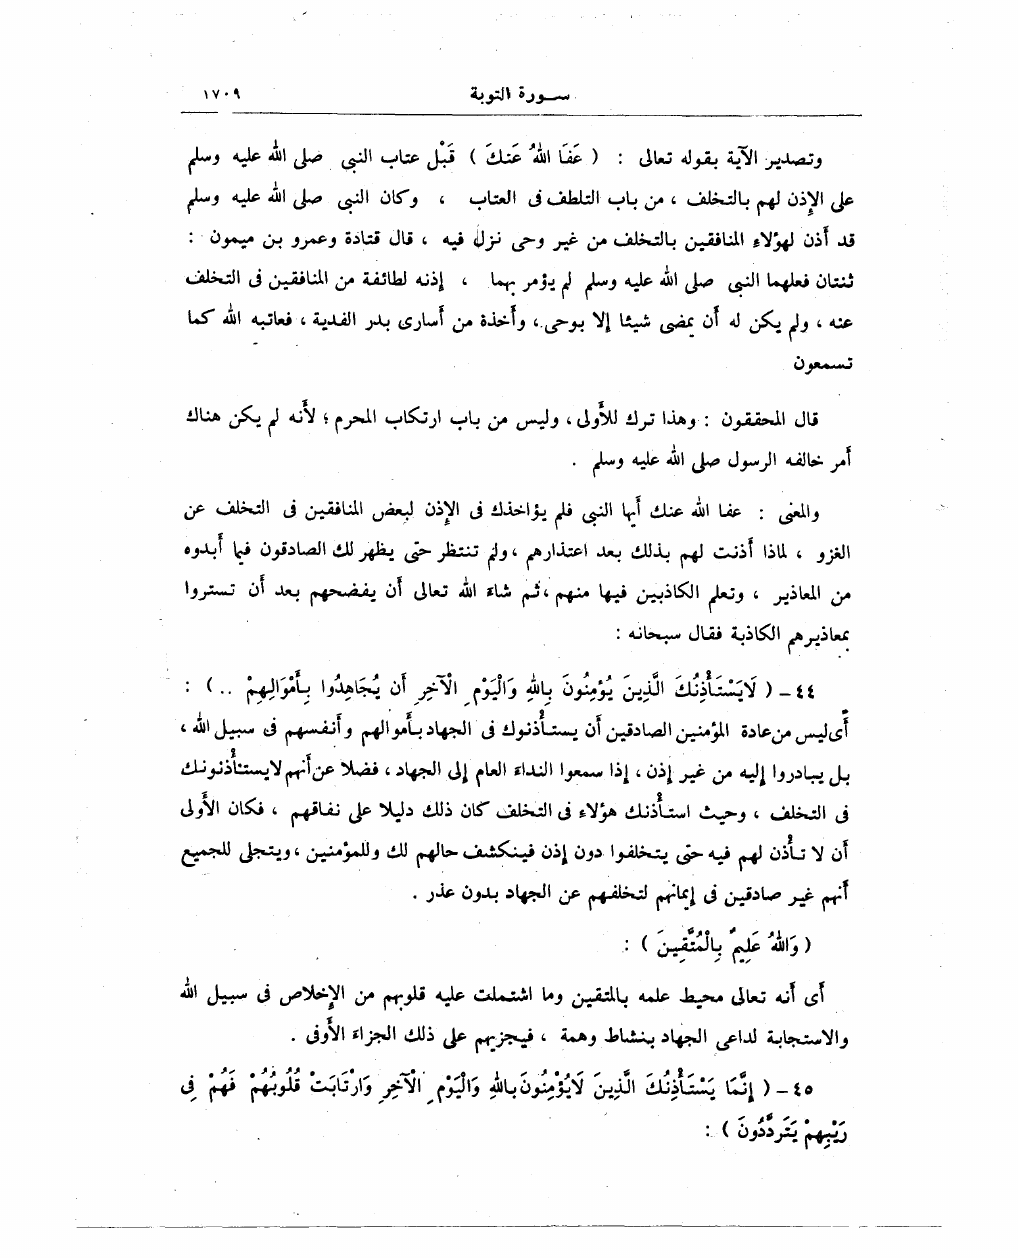 سورة التوبة ١٧٠٩
وتصدير الآية بقوله تعالى : ( عَفَا اللهُ عَنكَ ) قَبْل عتاب النبى صلى الله عليه وسلم
على الإذن لهم بالتخلف ، من باب التلطف فى العتاب ، وكان النبى صلى الله عليه وسلم
قد أذن لهؤلاء المنافقين بالتخلف من غير وحى نزل فيه ، قال قتادة وعمرو بن ميمون :
ثنتان فعلهما النبى صلى الله عليه وسلم لم يؤمر بهما ، إذنه لطائفة من المنافقين فى التخلف
عنه ، ولم يكن له أن يمضى شيئا إلا بوحى ، وأخذة من أسارى بدر الفدية ، فعاتبه الله كما
تسمعون
قال المحققون : وهذا ترك للأولى ، وليس من باب ارتكاب المحرم ؛ لأنه لم يكن هناك
أمر خالفه الرسول صلى الله عليه وسلم .
والمعنى : عفا الله عنك أيها النبى فلم يؤاخذك فى الإذن لبعض المنافقين فى التخلف عن
الغزو ، لماذا أذنت لهم بذلك بعد اعتذارهم ، ولم تنتظر حتى يظهر لك الصادقون فيما أبدوه
من المعاذير ، وتعلم الكاذبين فيها منهم ، ثم شاء الله تعالى أن يفضحهم بعد أن تستروا
بمعاذيرهم الكاذبة فقال سبحانه :
٤٤ – ( لَايَسْتَأْذِنُكَ الَّذِينَ يُؤْمِنُونَ بِاللهِ وَالْيَوْمِ الْآخِرِ أَن يُجَاهِدُوا بِأَمْوَالِهِمْ .. ) :
أى ليس من عادة المؤمنين الصادقين أن يستأذنوك فى الجهاد بأموالهم وأنفسهم فى سبيل الله ،
بل يبادروا إليه من غير إذن ، إذا سمعوا النداء العام إلى الجهاد ، فضلا عن أنهم لا يستأذنونك
فى التخلف ، وحيث استأذنك هؤلاء فى التخلف كان ذلك دليلا على نفاقهم ، فكان الأولى
أن لا تأذن لهم فيه حتى يتخلفوا دون إذن فينكشف حالهم لك وللمؤمنين ، ويتجلى للجميع
أنهم غير صادقين فى إيمانهم لتخلفهم عن الجهاد بدون عذر .
( وَاللهُ عَلِيمٌ بِالْمُتَّقِينَ ) :
أى أنه تعالى محيط علمه بالمتقين وما اشتملت عليه قلوبهم من الإخلاص فى سبيل الله
والاستجابة لداعى الجهاد بنشاط وهمة ، فيجزيهم على ذلك الجزاء الأوفى .
٤٥ – ( إِنَّمَا يَسْتَأْذِنُكَ الَّذِينَ لَايُؤْمِنُونَ بِاللهِ وَالْيَوْمِ الْآخِرِ وَارْتَابَتْ قُلُوبُهُمْ فَهُمْ فِى
رَيْبِهِمْ يَتَرَدَّدُونَ ) :